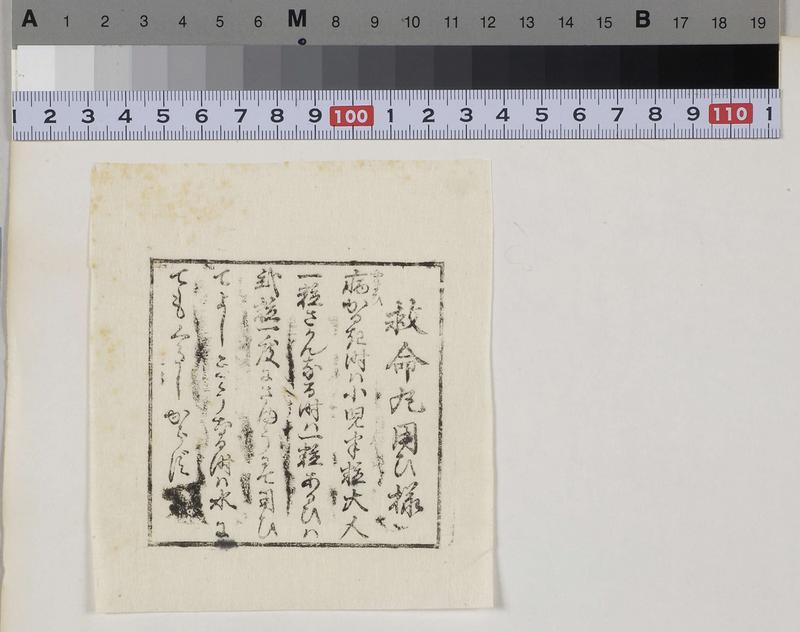 A 1 2 3 4 5 6 M 8 9 10 11 12 13 14 15 B 17 18 19
1 2 3 4 5 6 7 8 9 100 1 2 3 4 5 6 7 8 9 110 1
救命丸用ひ様
病かるき時ハ小児半粒大人
一粒さかんなる時ハ一粒あるひハ
弐粒一度にさゆにて用ひ
てよし きうなる時ハ水に
てもくるしからず